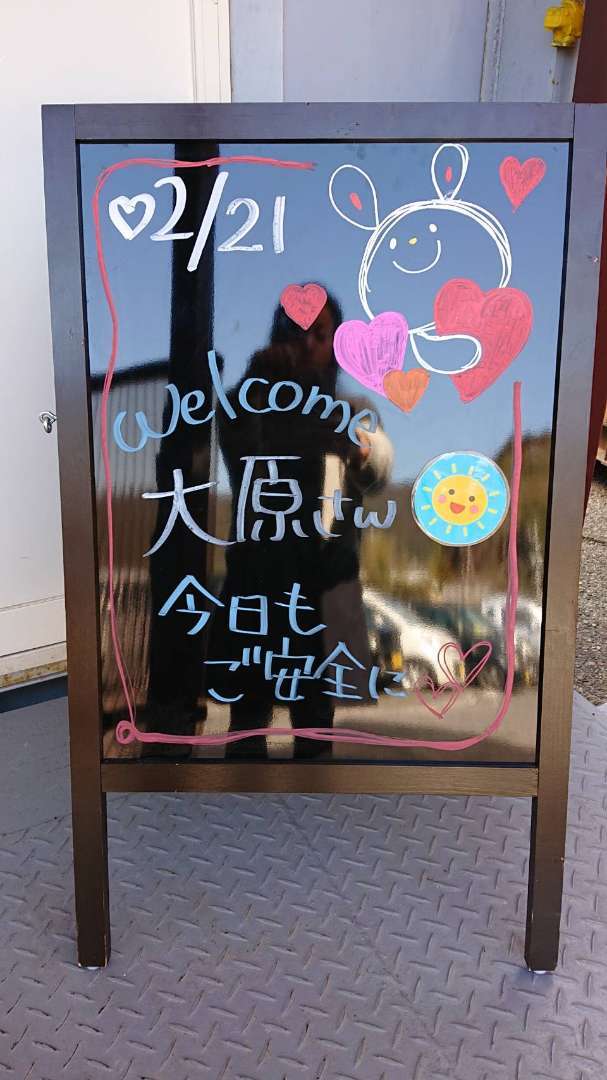 ♡2/21
welcome
大原さん
今日も
ご安全に